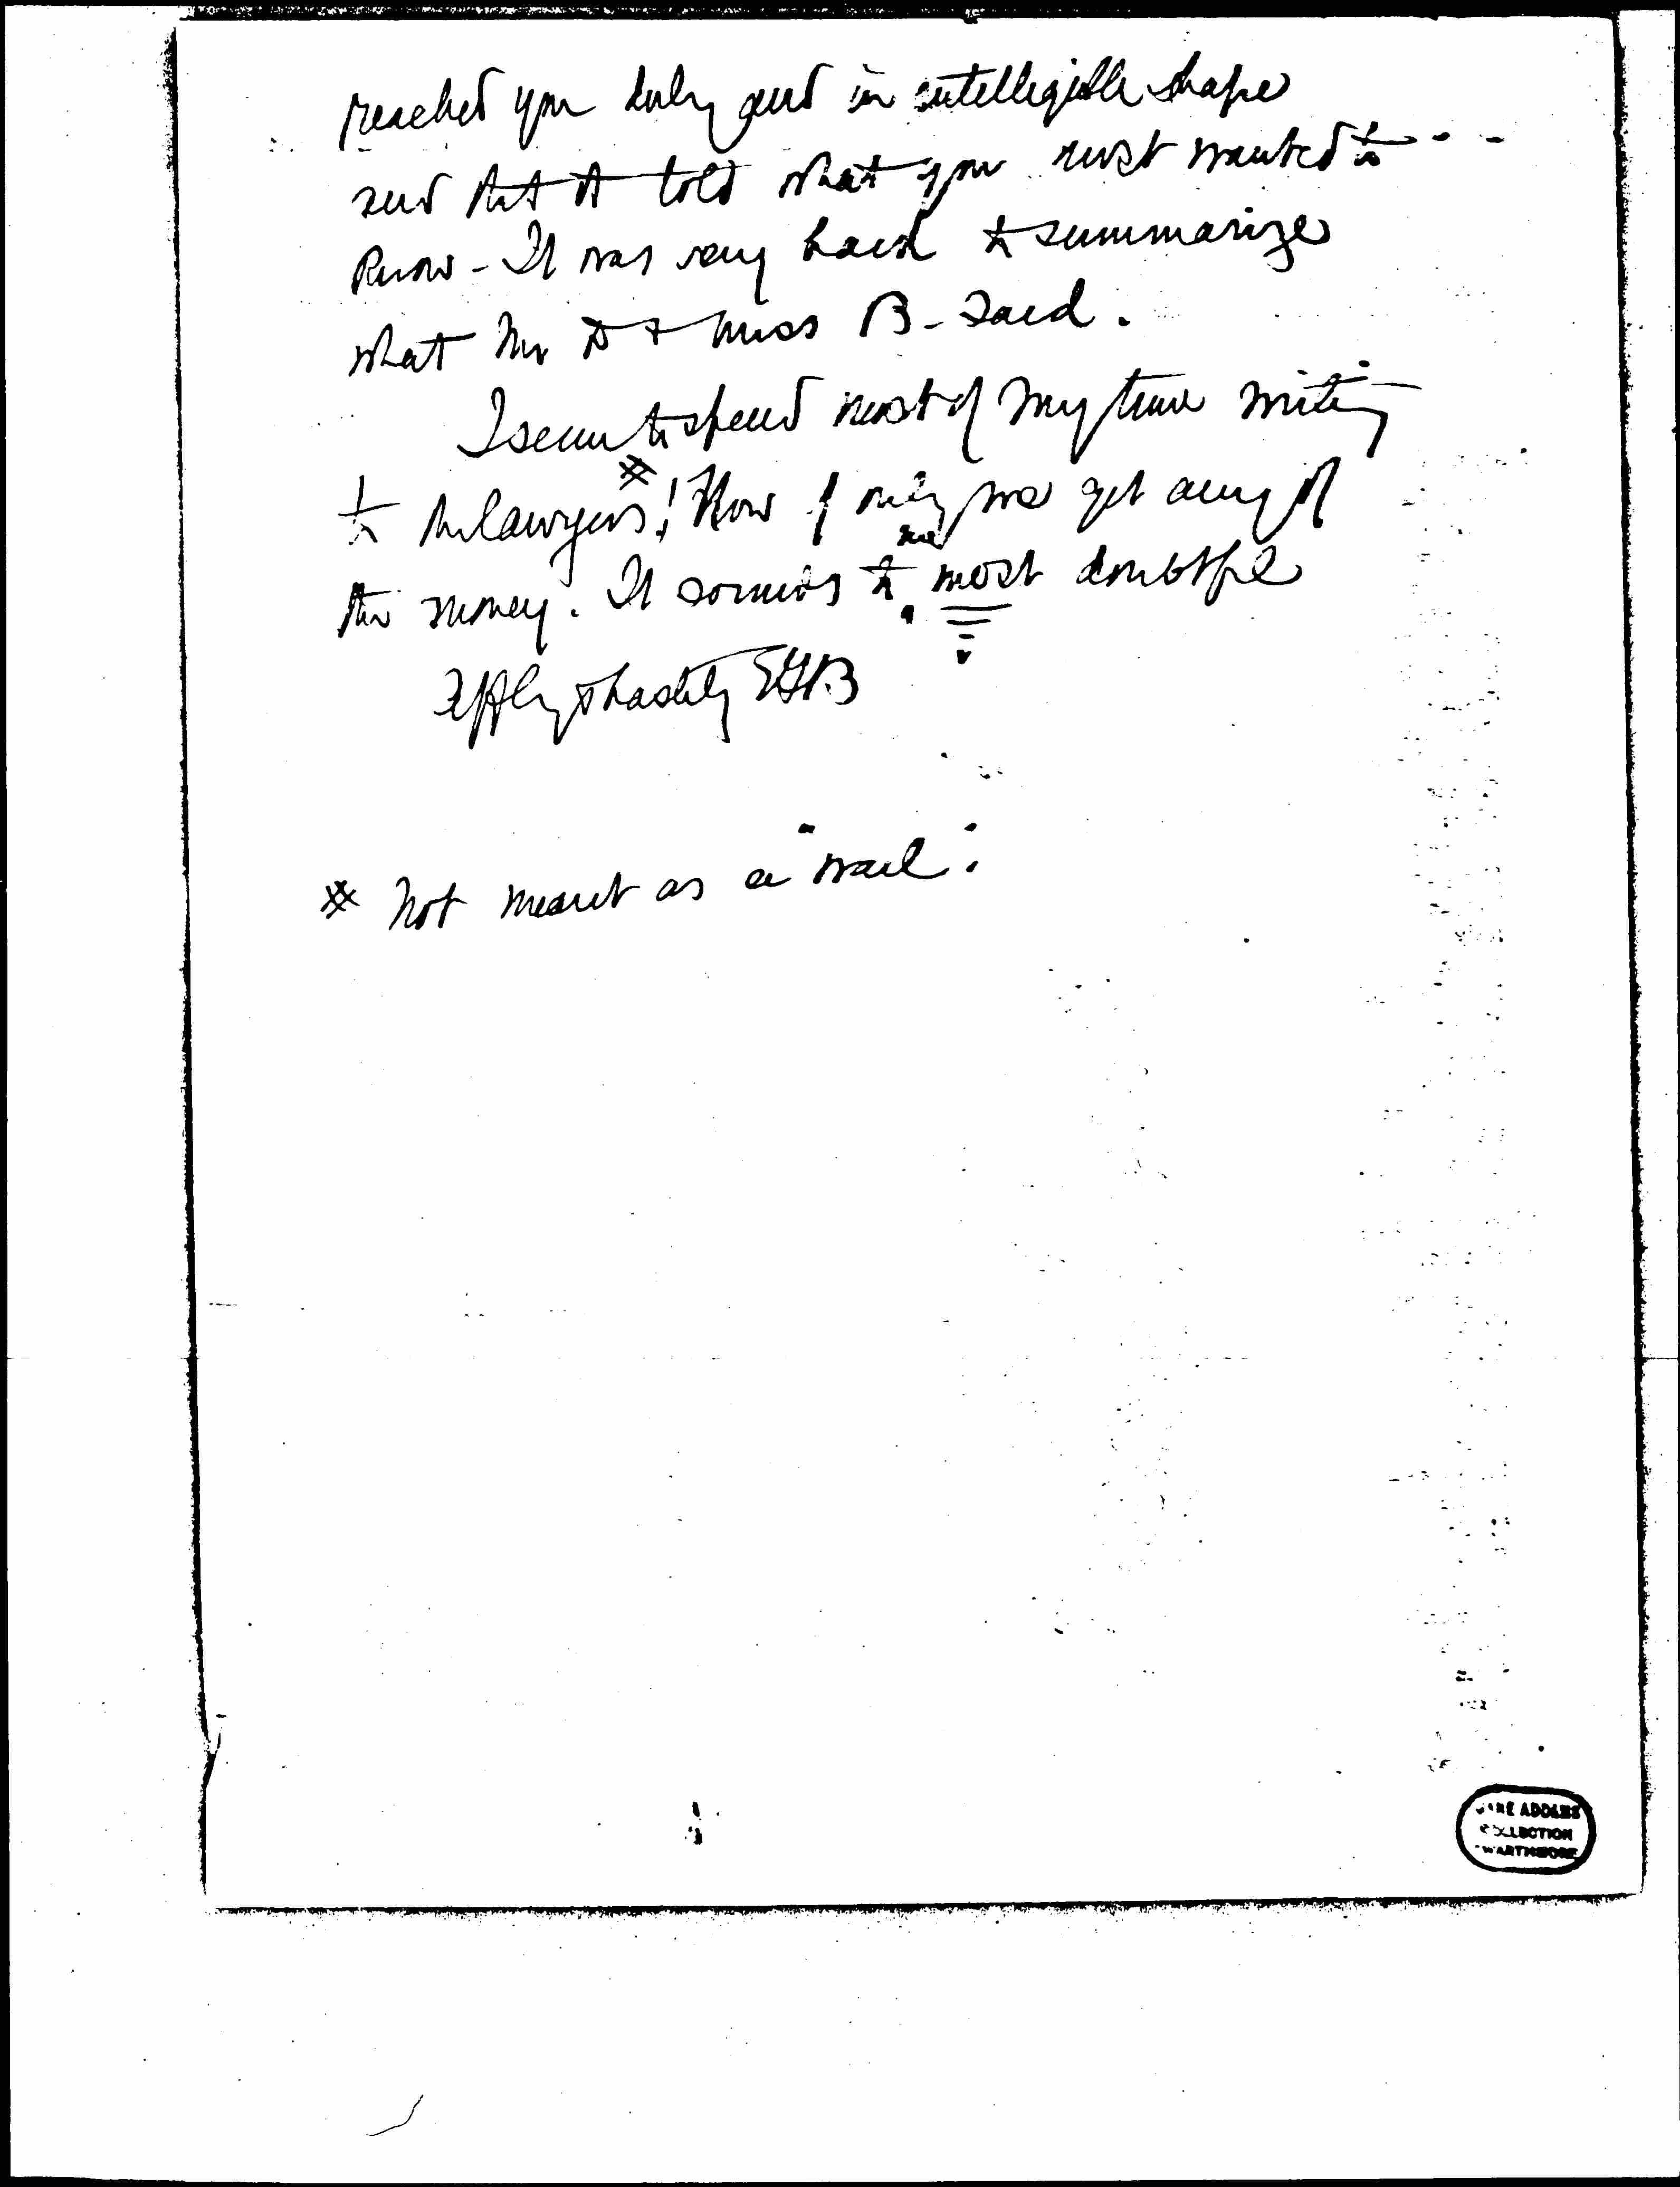 reached you duly and in intelligible shape
and that it told what you most wanted to
know - It was very hard to summarize
what Mr D + Miss B - said.
I seem to spend most of my time writing
to the lawyers #! Now if only we get any of
the money. It sounds to me most doubtful
affly & hastily EGB
# Not meant as a "wail".
JANE ADDAMS
COLLECTION
SWARTHMORE